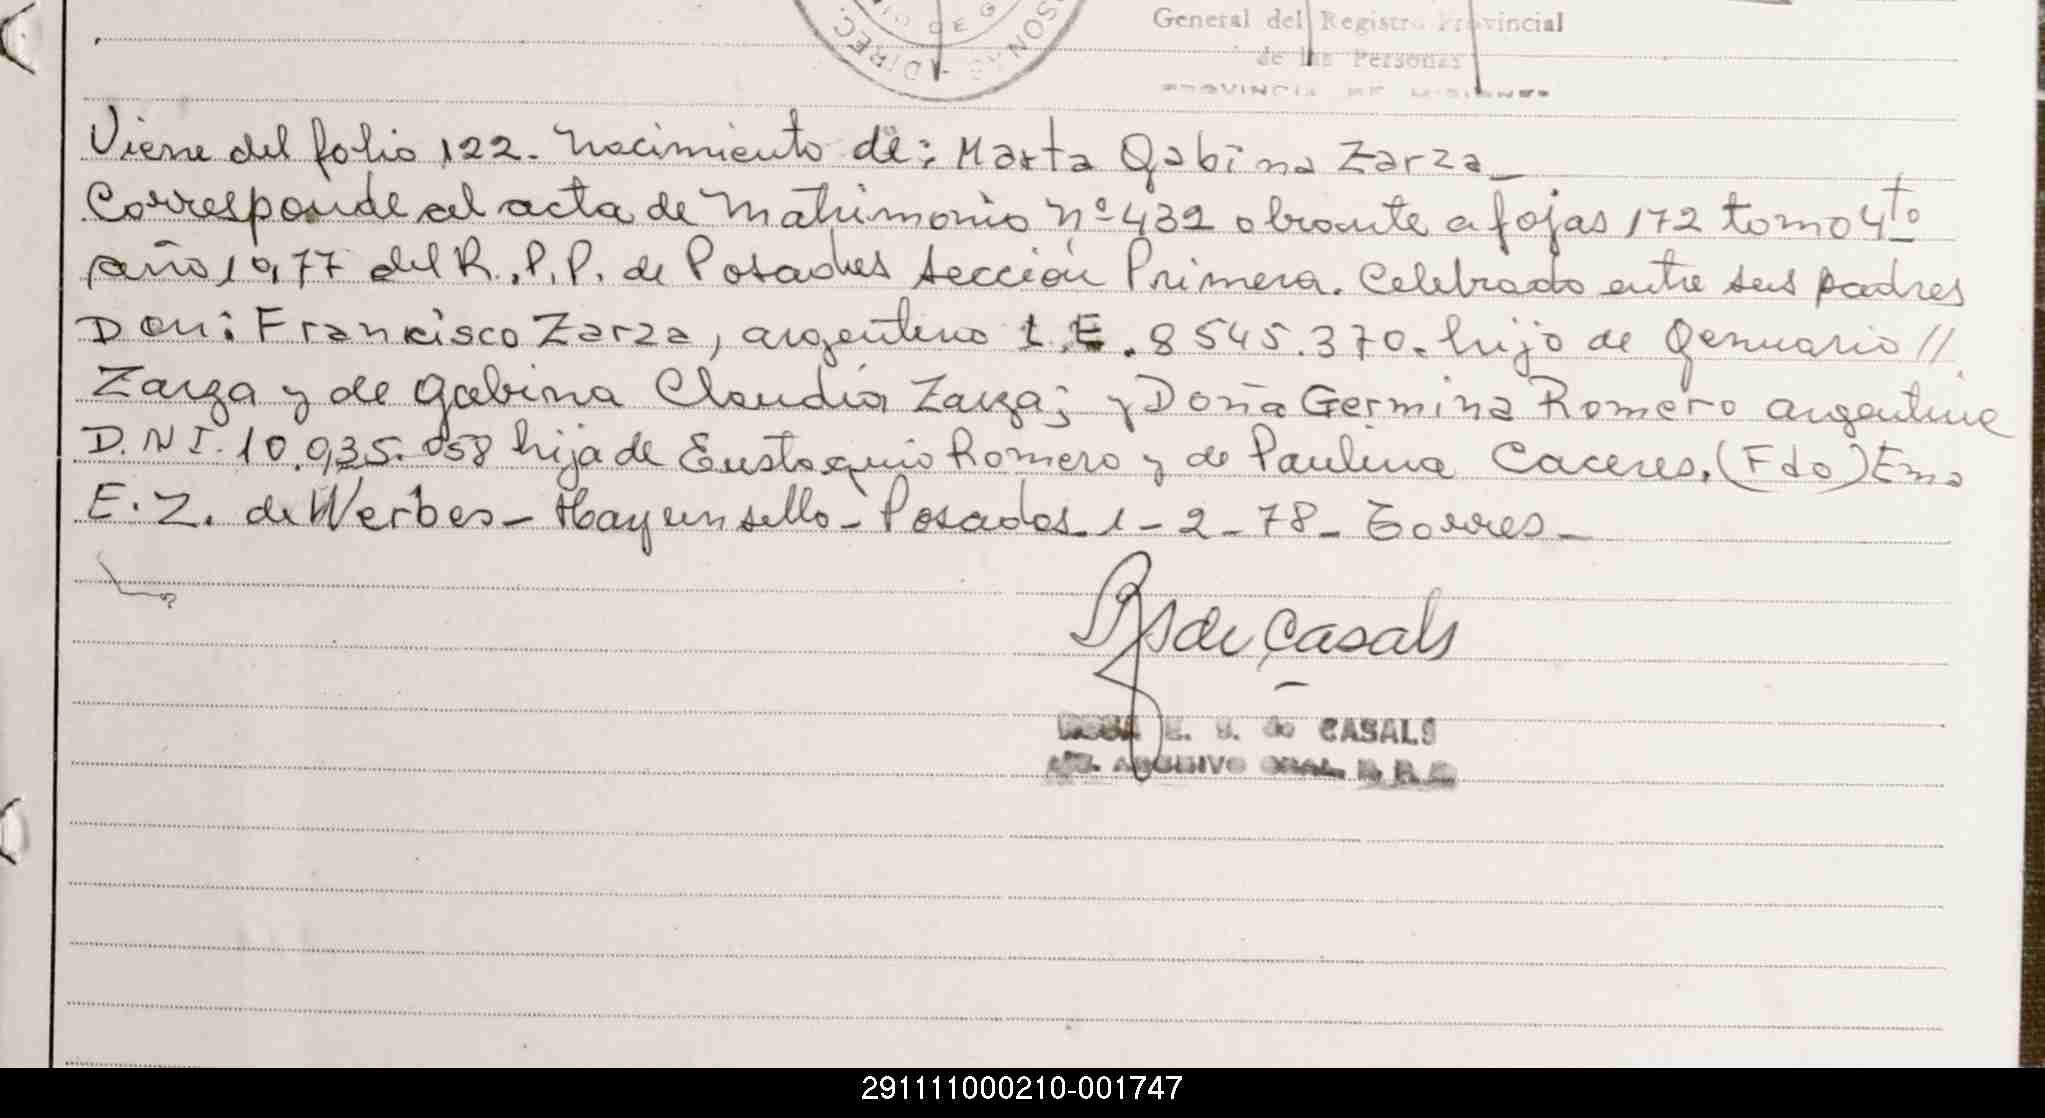 General del Registro Provincial
de las Personas
PROVINCIA DE MISIONES
Viene del folio 122. Nacimiento de: Marta Gabina Zarza_
Corresponde al acta de Matrimonio nº 432 obrante a fojas 172 tomo 4to
año 1977 del R.P.P. de Posadas sección Primera. Celebrado entre sus padres
Don: Francisco Zarza, argentino L.E. 8545.370. hijo de Genuario //
Zarza y de Gabina Claudia Zarza; y Doña Germina Romero argentina
D.N.I. 10.935.058 hija de Eustaquio Romero y de Paulina Caceres. (Fdo) Ema
E. Z. de Werbes - Hay un sello - Posadas 1-2-78- Torres_
de Casals
E. de CASALS
ARCHIVO GRAL.
291111000210-001747